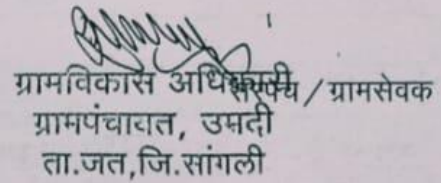 ग्रामविकास अधिकारी
सरपंच / ग्रामसेवक
ग्रामपंचायत, उमदी
ता.जत,जि.सांगली